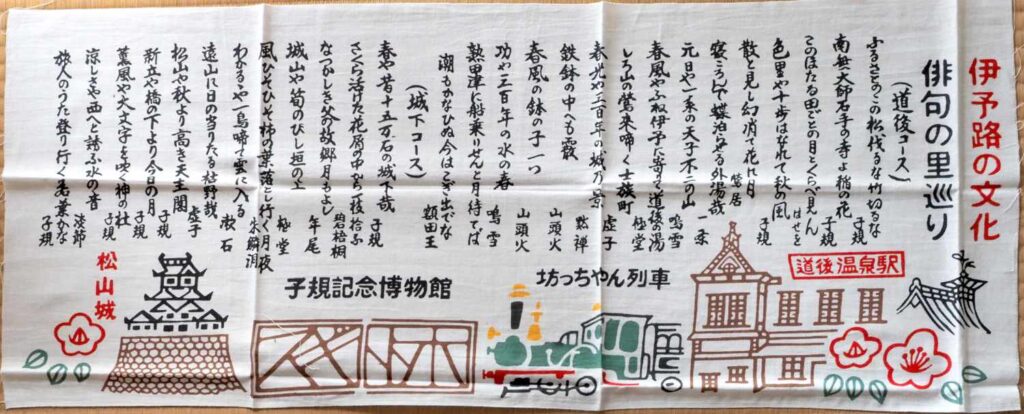 伊予路の文化
俳句の里巡り
(道後コース)
ふるさとのこの松伐るな竹切るな 子規
南無大師石手の寺よ稲の花 子規
このほたる田ごとの月とくらべ見ん はせを
色里や十歩はなれて秋の風 子規
散と見し幻消て花に月 鶯居
寝ころんで蝶泊らせる外湯哉 一茶
元日や一系の天子不二の山 鳴雪
春風やふね伊予に寄りて道後の湯 極堂
しろ山の鶯来啼く士族町 虚子
春光や三百年の城の景 黙禅
鉄鉢の中へも霰 山頭火
春風の鉢の子一つ 山頭火
功や三百年の水の春 鳴雪
熟田津に船乗りせんと月待てば
潮もかなひぬ今はこぎ出でな 額田王
(城下コース)
春や昔十五万石の城下哉 子規
さくら活けた花屑の中から一枝拾ふ 碧梧桐
なつかしき父の故郷月もよし 年尾
城山や筍のびし垣の上 極堂
風ひそひそ柿の葉落とし行く月夜 朱鱗洞
わかるゝや一鳥啼て雲に入る 漱石
遠山に日の当りたる枯野哉 虚子
松山や秋より高き天主閣 子規
新立や橋の下より今日の月 子規
薫風や大文字を吹く神の杜 子規
涼しさや西へと誘ふ水の音
旅人のうた登り行く若葉かな 子規
道後温泉駅
坊っちゃん列車
子規記念博物館
松山城